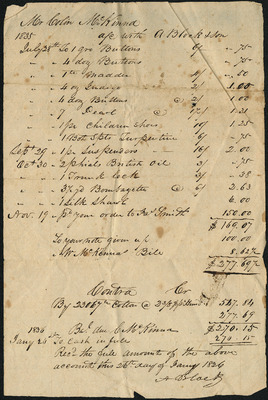 Mr Colin McKenna
1835 a/c with A Black & Son
July 28th To 1 gro Buttons 6/ .75
" - " 4 doz Buttons .75
" - " 1 lb Madder 4/ .50
" - " 4 oz Indigo 2/ 1.00
" - " 4 doz Buttons @ 2/ 1.00
" - " 7 " Pearl @ 1/ 1.31
" - " 1 pr Childrens shoes 10/ 1.25
" - " 1 Bottle Turpentine 6/ .75
Oct 29 - 1 pr Suspenders 16/ 2.00
Oct 30 - 2 phials British Oil 3/ .75
" - " 1 Trunk Lock 3/ .38
" - " yd Bombazette @ 2.63
" - " 1 Silk Shawl 6.00
Nov. 19 - pd your order to Smith 150.00
$ 169.07
To your note given up 100.00
" Mr McKennas Bill 8.62½
$ 277.69½
Contra Cr
By Cotton @ 547.84
$ 277.69½
1836 Bal due C McKenna $ 270.15
Jany 26th To Cash in full 270 15
Recd the full amount of the above
account this 26th day of Jany 1836
A Black